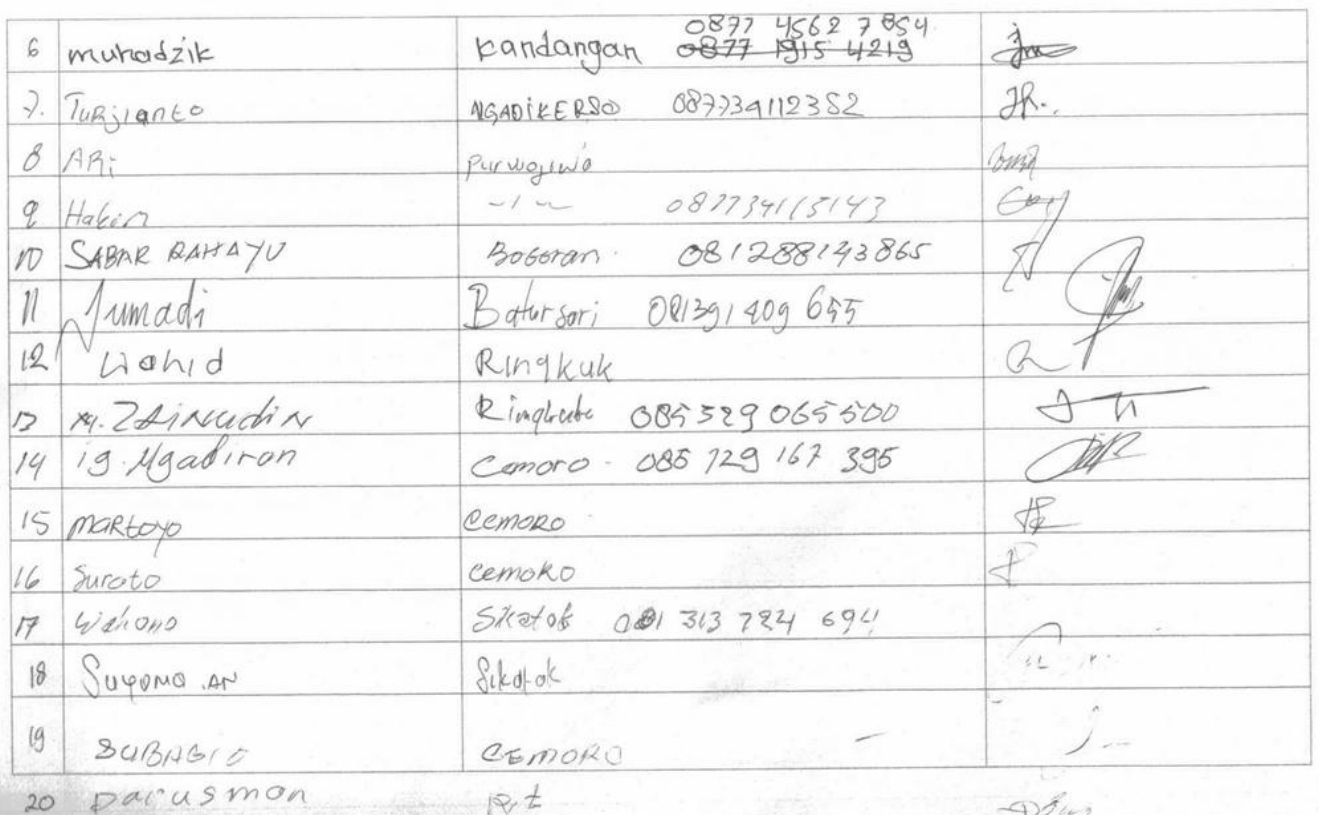 0877 4562 7854
6 muhadzik kandangan 0877 1915 4219
7. Turjianto NGADIKERSO 087734112352
8 ARi purwogiwo
9 Hakim 087734115143
10 SABAR RAHAYU Bogoran 081288143865
11 Jumadi Batursari 081391409 655
12 Wahid Ringkuk
13 M. ZAiNudiN 085329065500
14 ig. Ngadiron Cemoro - 085 729 167 395
15 martoyo cemoro
16 Suroto cemoro
17 Wahono Sikatok 081 313 724 694
18 Suyono .AN Sikatok
19 SUBAGIO CEMORO
20 Darusman